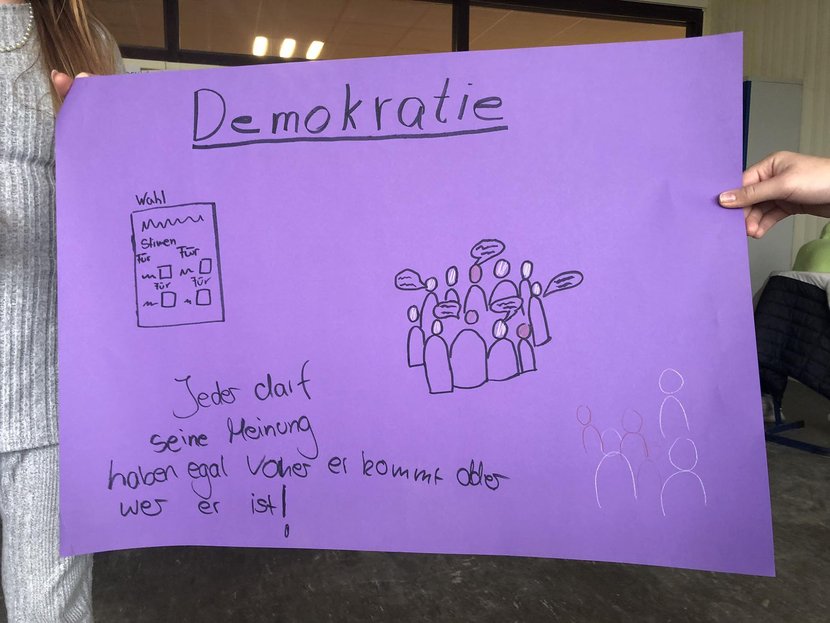 Demokratie
Wahl
Stimen
Für Für
Für Für
Jeder darf
seine Meinung
haben egal Voher er kommt oder
wer er ist!